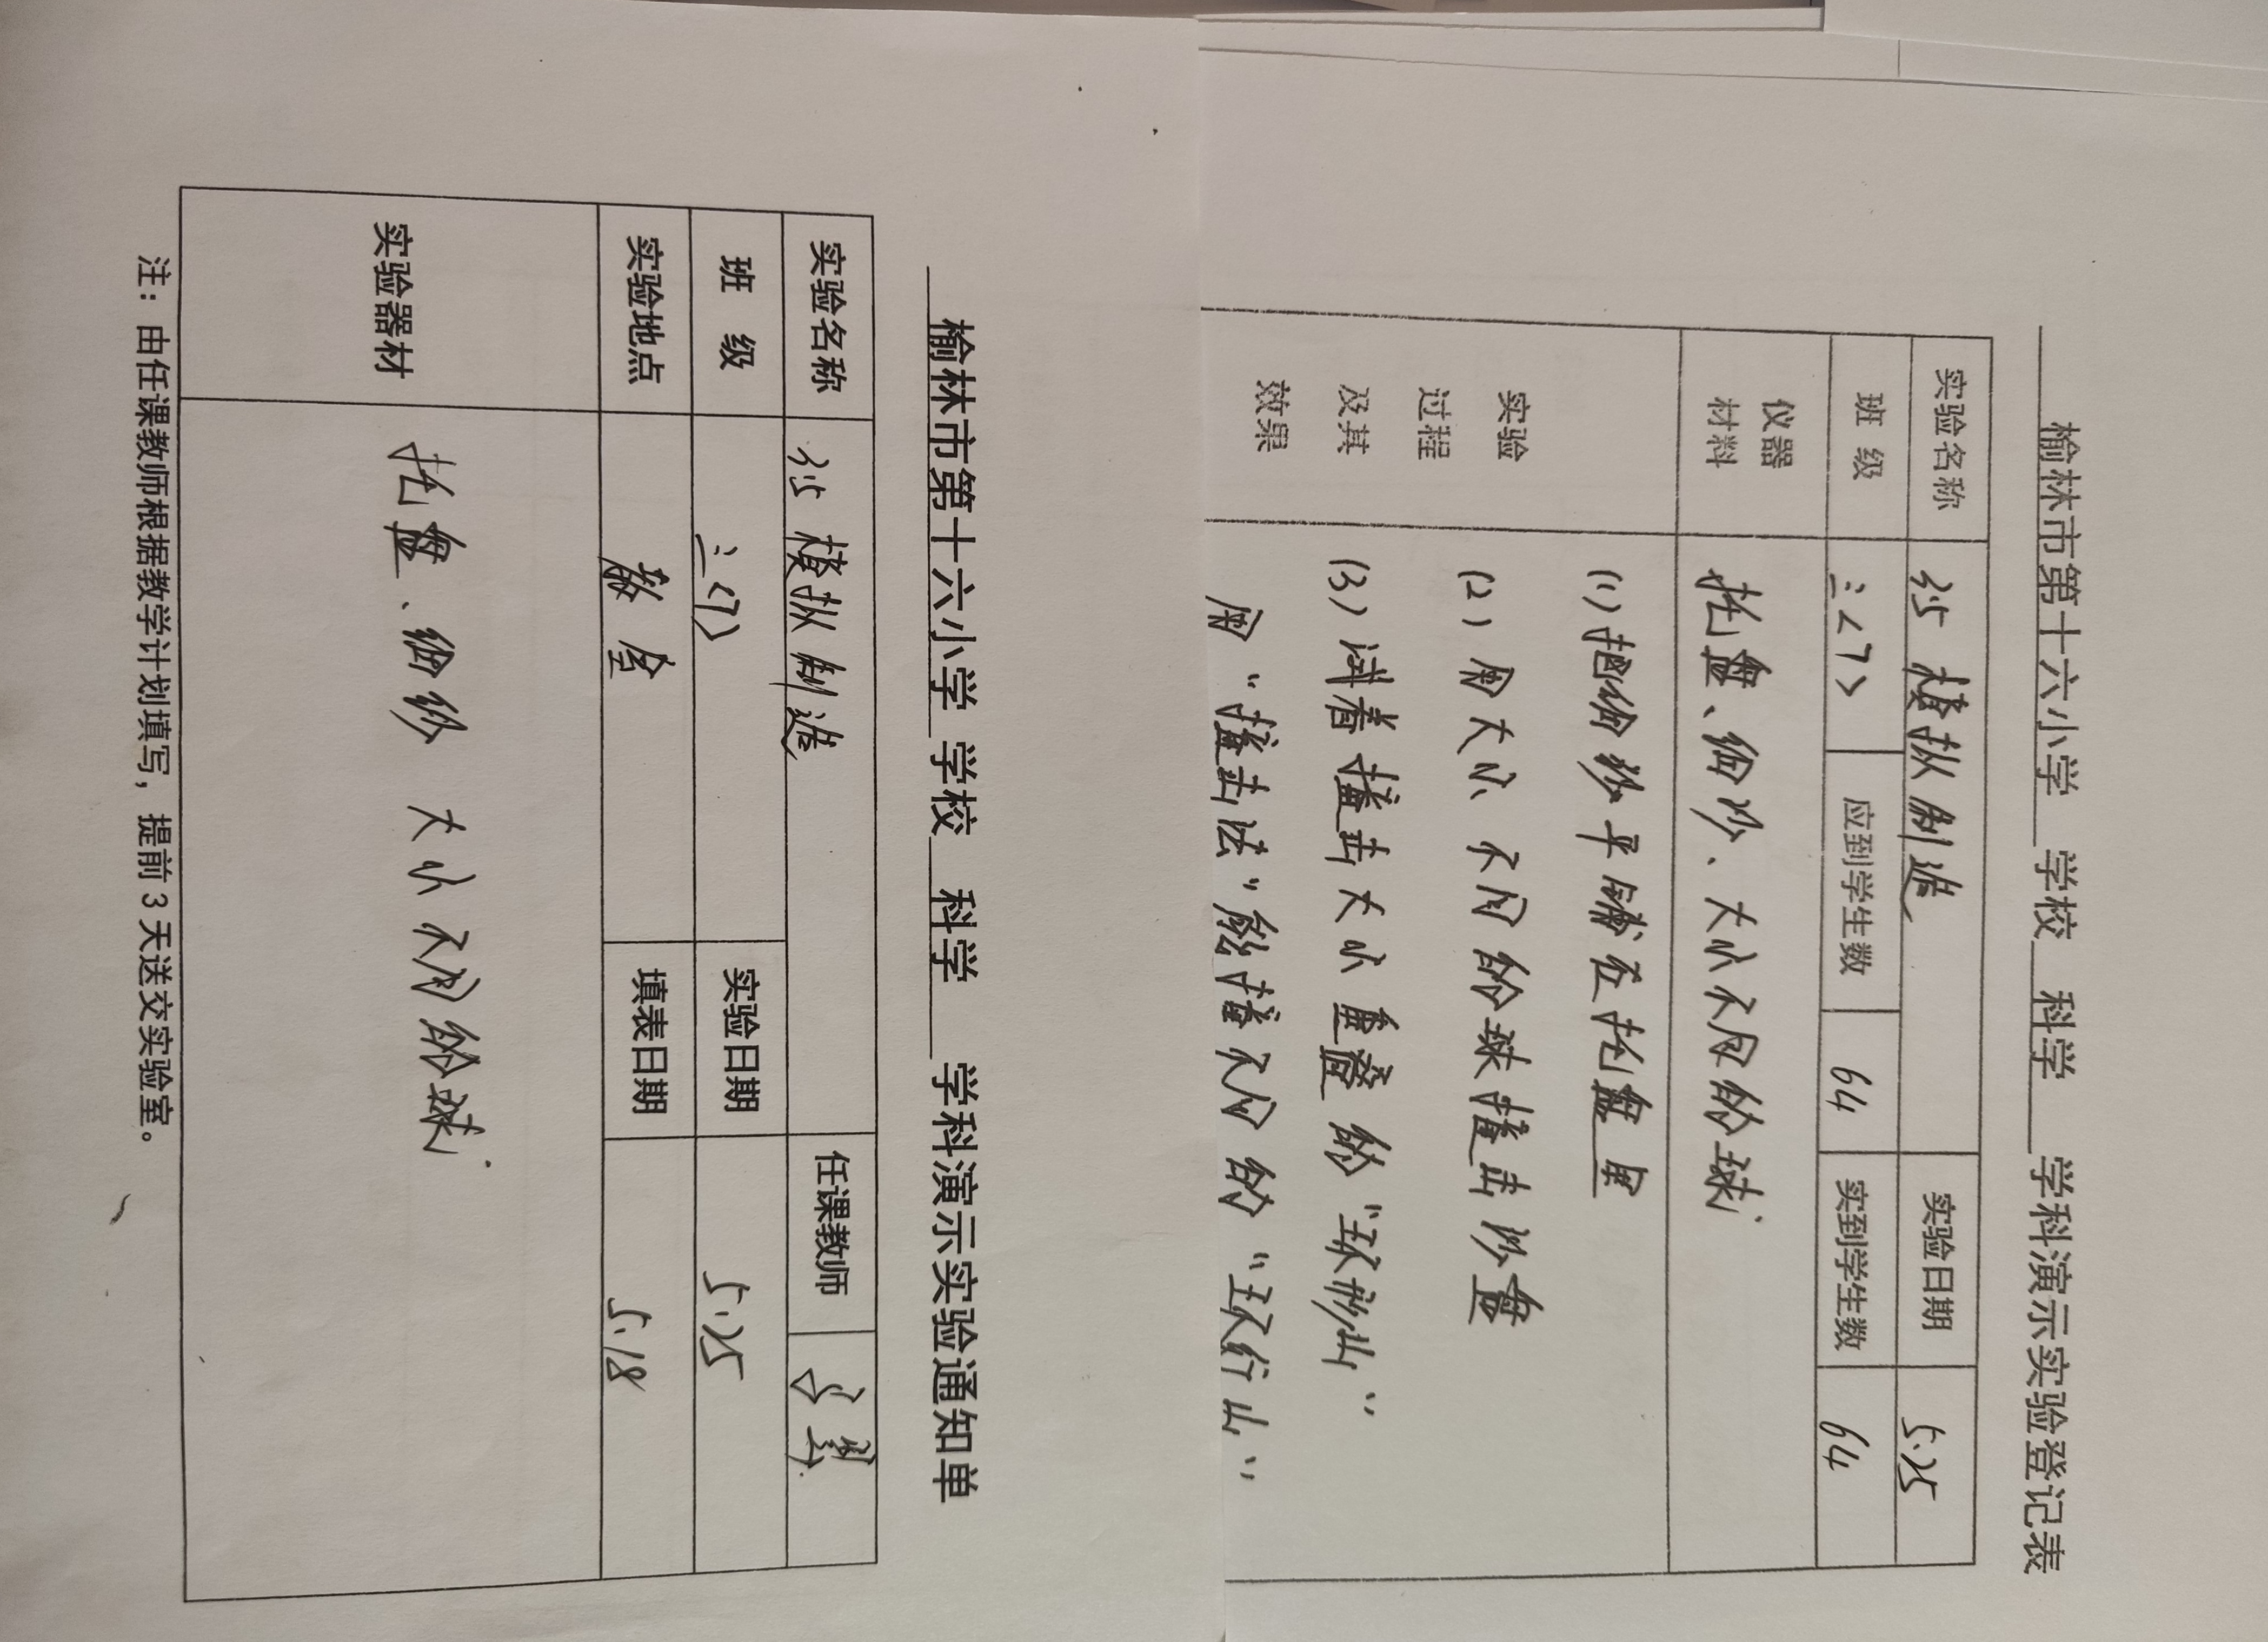 榆林市第十六小学 学校 科学 学科演示实验登记表
实验名称 35 模拟制造 实验日期 5.25
班 级 三(7) 应到学生数 64 实到学生数 64
仪器 材料 托盘、细沙、大小不同的球
实验 过程 及其 效果
(1) 把细沙平铺在托盘里
(2) 用大小不同的球撞击沙盘
(3) 讲着撞击大小重叠的"环形山"
用"撞击法"能撞不同的"环行山"
榆林市第十六小学 学校 科学 学科演示实验通知单
实验名称 35 模拟制造 任课教师
班 级 三(7) 实验日期 5.25
实验地点 教室 填表日期 5.18
实验器材 托盘、细沙 大小不同的球
注：由任课教师根据教学计划填写，提前3天送交实验室。